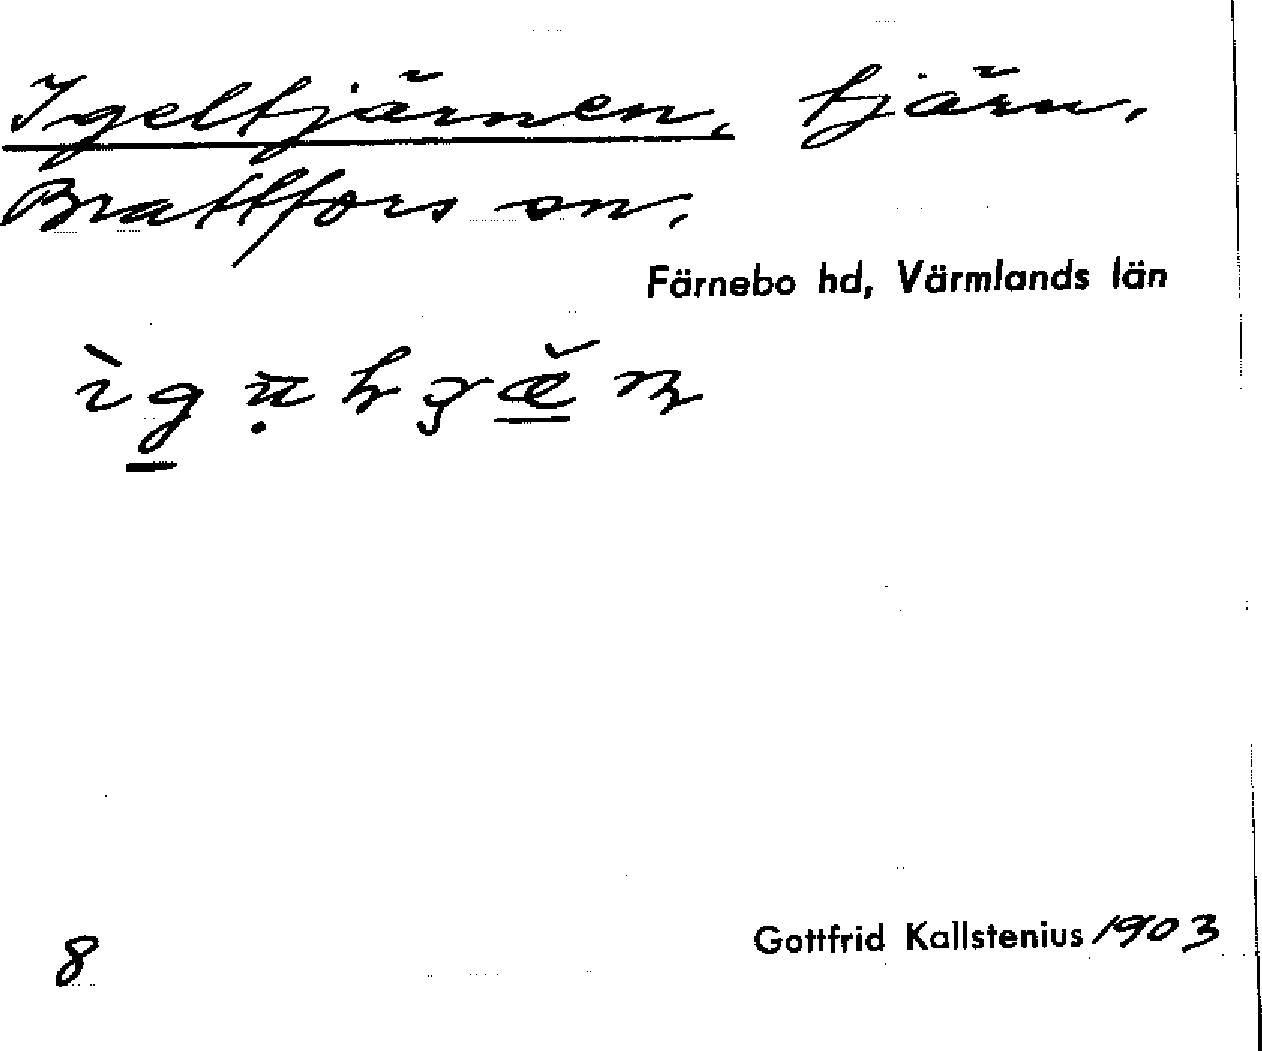 Igeltjärnen, tjärn,
Brattfors sn,
Färnebo hd, Värmlands län
8
Gottfrid Kallstenius 1903